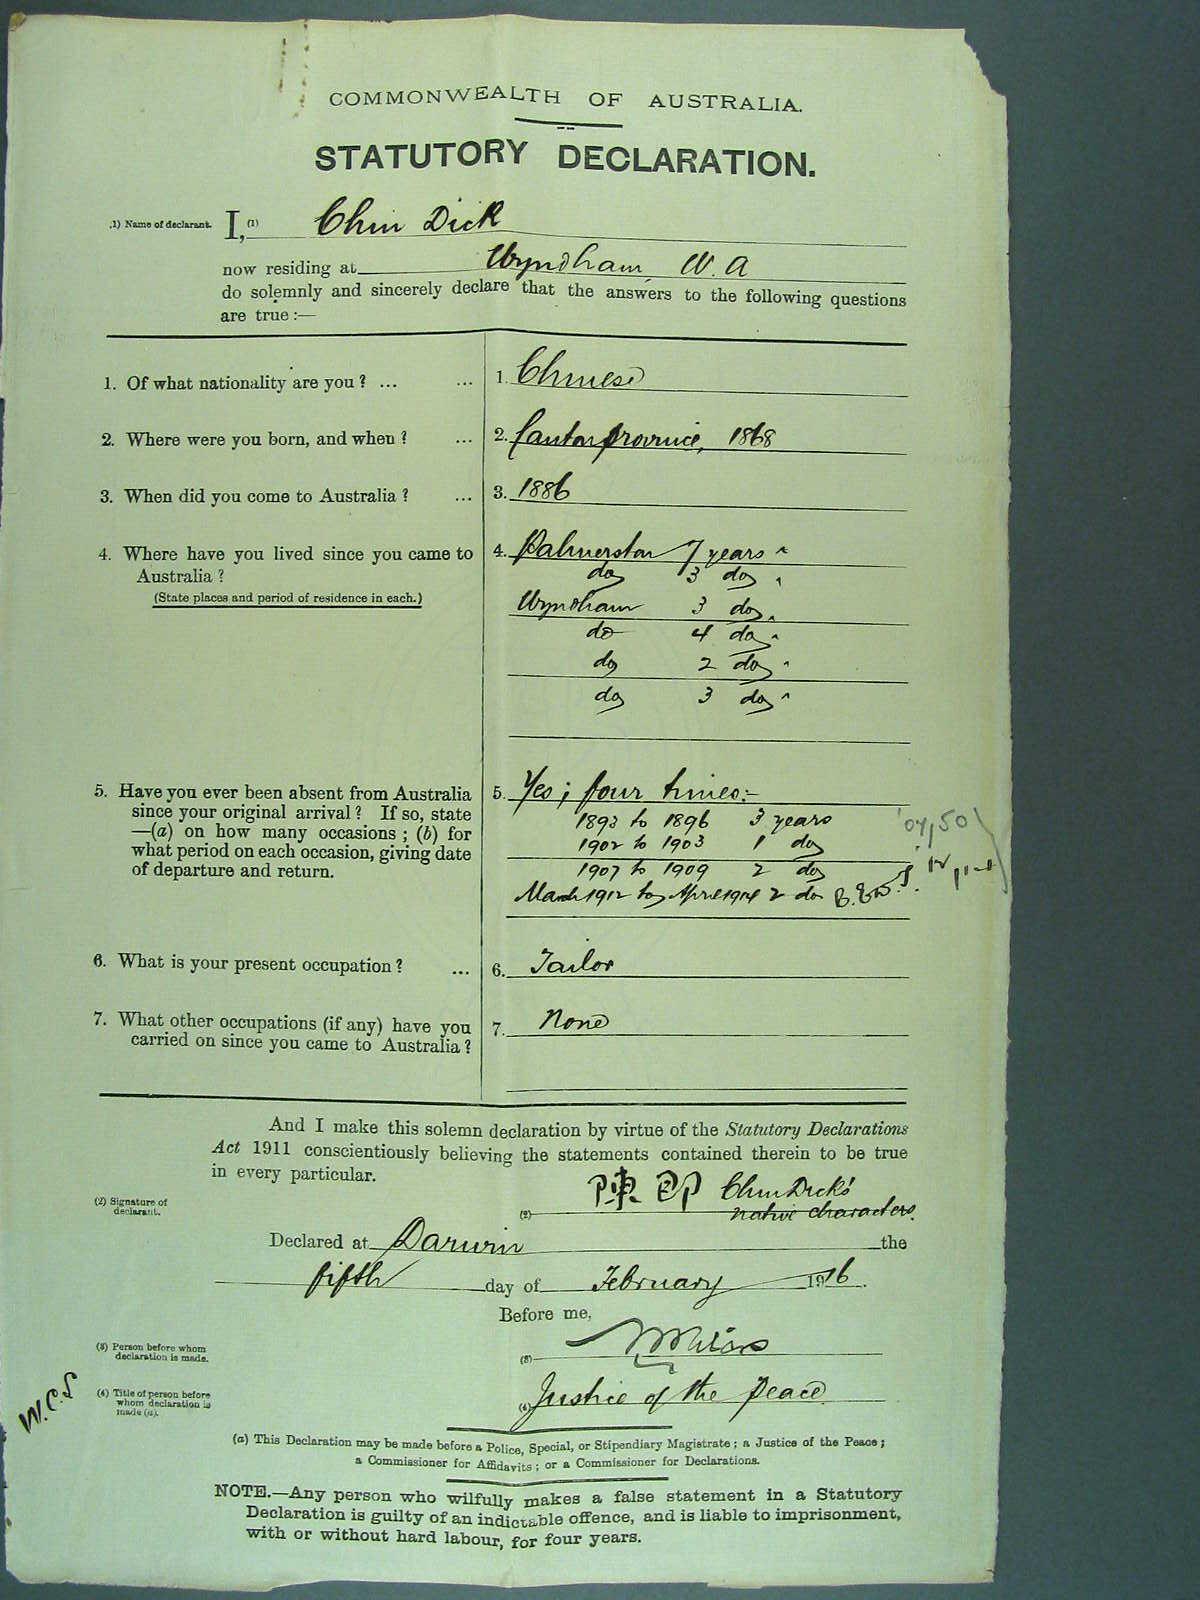 COMMONWEALTH OF AUSTRALIA.
STATUTORY DECLARATION.
(1) Name of declarant. I, (1) Chin Dick
now residing at Wyndham, W. A
do solemnly and sincerely declare that the answers to the following questions
are true :—
1. Of what nationality are you ? ... ... 1. Chinese
2. Where were you born, and when ? ... 2. Canton province, 1868
3. When did you come to Australia ? ... 3. 1886
4. Where have you lived since you came to 4. Palmerston 7 years "
Australia ? do 3 do "
(State places and period of residence in each.) Wyndham 3 do "
do 4 do "
do 2 do "
do 3 do "
5. Have you ever been absent from Australia 5. Yes ; four times :—
since your original arrival ? If so, state 1893 to 1896 3 years
—(a) on how many occasions ; (b) for 1902 to 1903 1 do
what period on each occasion, giving date 1907 to 1909 2 do
of departure and return. March 1912 to April 1914 2 do
'04/50
6. What is your present occupation ? ... 6. Tailor
7. What other occupations (if any) have you 7. None
carried on since you came to Australia ?
And I make this solemn declaration by virtue of the Statutory Declarations
Act 1911 conscientiously believing the statements contained therein to be true
in every particular.
(2) Signature of declarant. (2) 陳 Chin Dick's
native characters.
Declared at Darwin the
fifth day of February 1916.
Before me,
(3) Person before whom declaration is made. (3)
(4) Title of person before whom declaration is made (a). (4) Justice of the Peace
W.C.S
(a) This Declaration may be made before a Police, Special, or Stipendiary Magistrate ; a Justice of the Peace ;
a Commissioner for Affidavits ; or a Commissioner for Declarations.
NOTE.—Any person who wilfully makes a false statement in a Statutory
Declaration is guilty of an indictable offence, and is liable to imprisonment,
with or without hard labour, for four years.